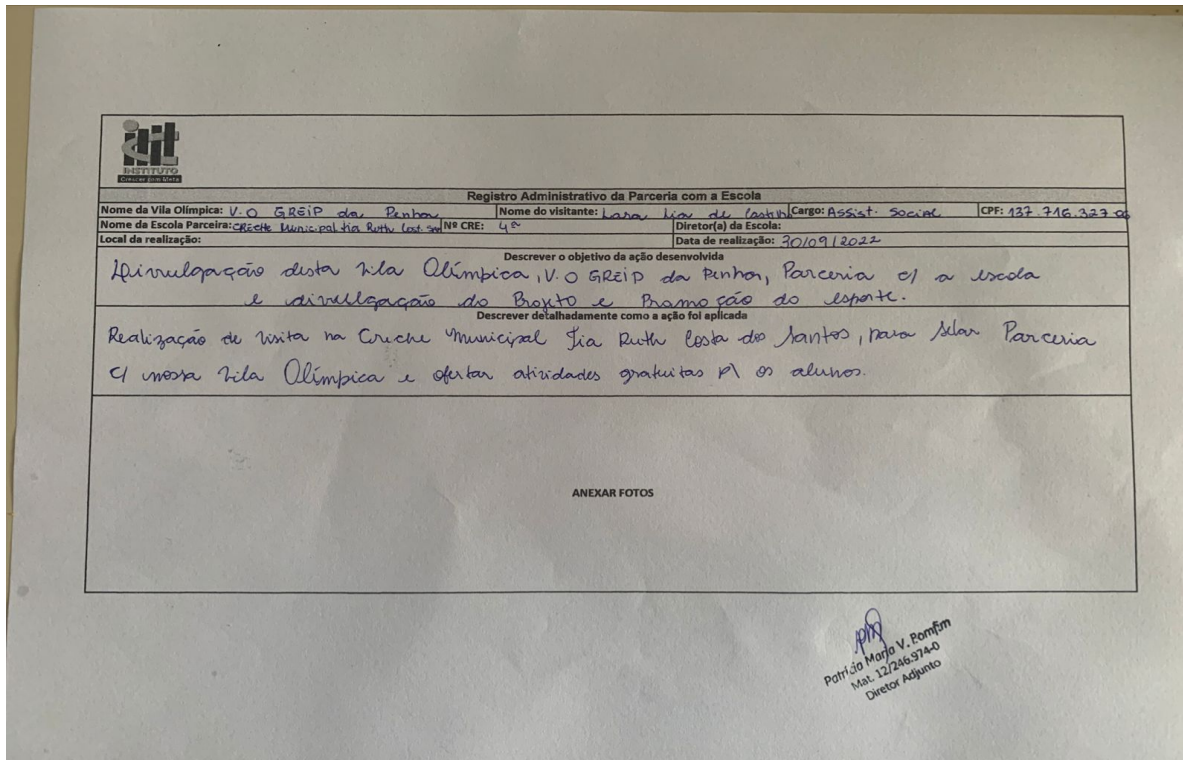 INSTITUTO
Crescer com Meta
Registro Administrativo da Parceria com a Escola
Nome da Vila Olímpica: V.O GREIP da Penha Nome do visitante: Lara Lia de Cargo: Assist. Social CPF: 137.716.327
Nome da Escola Parceira: CRECHE Municipal tia Ruth Cost. Nº CRE: 4ª Diretor(a) da Escola:
Local da realização: Data de realização: 30/09/2022
Descrever o objetivo da ação desenvolvida
Divulgação desta Vila Olímpica, V.O GREIP da Penha, Parceria c/ a escola
e divulgação do Projeto e Promoção do esporte.
Descrever detalhadamente como a ação foi aplicada
Realização de visita na Creche Municipal Tia Ruth Costa dos Santos, para selar Parceria
c/ nossa Vila Olímpica e ofertar atividades gratuitas p\ os alunos.
ANEXAR FOTOS
Patricia Maria V. Pomfim
Mat. 12/246.974-0
Diretor Adjunto